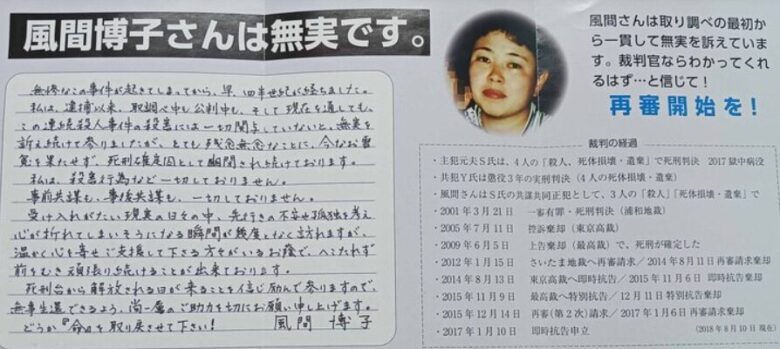 風間博子さんは無実です。
無惨なこの事件が起きてしまってから、早 四半世紀が経ちました。
私は、逮捕以来、取調べ中も公判中も、そして現在を通しても、
この連続殺人事件の殺害には一切関与していないと、無実を
訴え続けて参りましたが、とても残念無念なことに、今なお雪
冤を果たせず、死刑確定囚として幽閉され続けております。
私は、殺害行為など一切しておりません。
事前共謀も、事後共謀も、一切しておりません。
受け入れがたい現実の日々の中、先行きの不安や孤独を考え
心が折れてしまいそうになる瞬間が幾度となく訪れますが、
温かく心を寄せご支援して下さる方々がいるお蔭で、へこたれず
前をむき頑張り続けることが出来ております。
死刑台から解放される日が来ることを信じ励んで参りますので、
無事生還できるよう、尚一層のご助力を切にお願い申し上げます。
どうか『命』を取り戻させて下さい!
風間 博子
風間さんは取り調べの最初
から一貫して無実を訴えていま
す。裁判官ならわかってくれ
れるはず…と信じて!
再審開始を!
裁判の経過
・主犯元夫S氏は、4人の「殺人、死体損壊・遺棄」で死刑判決 2017獄中病没
・共犯Y氏は懲役3年の実刑判決(4人の死体損壊・遺棄)
・風間さんはS氏の共謀共同正犯として、3人の「殺人」「死体損壊・遺棄」で
・2001年3月21日 一審有罪・死刑判決(浦和地裁)
・2005年7月11日 控訴棄却(東京高裁)
・2009年6月5日 上告棄却(最高裁)で、死刑が確定した
・2012年1月15日 さいたま地裁へ再審請求/2014年8月11日再審請求棄却
・2014年8月13日 東京高裁へ即時抗告/2015年11月6日 即時抗告棄却
・2015年11月9日 最高裁へ特別抗告/12月11日特別抗告棄却
・2015年12月14日 再審(第2次)請求/2017年1月6日再審請求棄却
・2017年1月10日 即時抗告申立
(2018年8月10日現在)